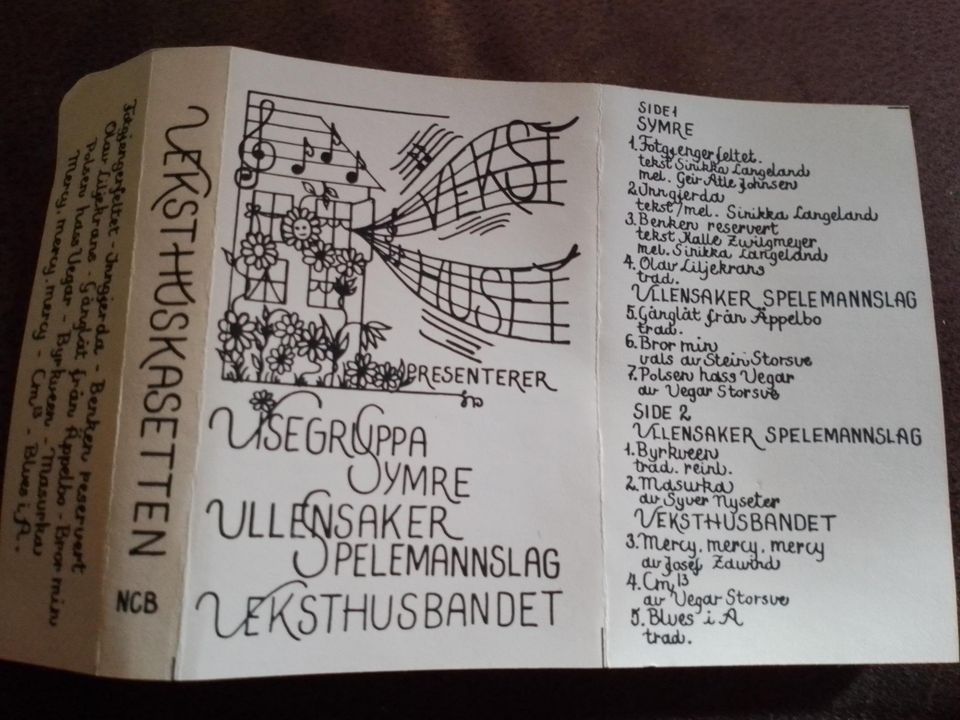 Fotgjengerfeltet - Inngjerda - Benken reservert
Olav Liljekrans - Gånglåt från Äppelbo - Bror min
Polsen hass Vegar - Byrkveen - Masurka
Mercy, mercy, mercy - Cm¹³ - Blues i A.
VEKSTHUSKASETTEN
NCB
VEKST
HUSET
PRESENTERER
VISEGRUPPA
SYMRE
ULLENSAKER
SPELEMANNSLAG
VEKSTHUSBANDET
SIDE 1
SYMRE
1. Fotgjengerfeltet.
tekst Sinikka Langeland
mel. Geir Atle Johnsen
2. Inngjerda
tekst/mel. Sinikka Langeland
3. Benken reservert
tekst Kalle Zwilgmeyer
mel. Sinikka Langeland
4. Olav Liljekrans
trad.
ULLENSAKER SPELEMANNSLAG
5. Gånglåt från Äppelbo
trad.
6. Bror min
vals av Stein Storsve
7. Polsen hass Vegar
av Vegar Storsve
SIDE 2
ULLENSAKER SPELEMANNSLAG
1. Byrkveen
trad. reinl.
2. Masurka
av Syver Nyseter
VEKSTHUSBANDET
3. Mercy, mercy, mercy
av Josef Zawind
4. Cm¹³
av Vegar Storsve
5. Blues i A
trad.